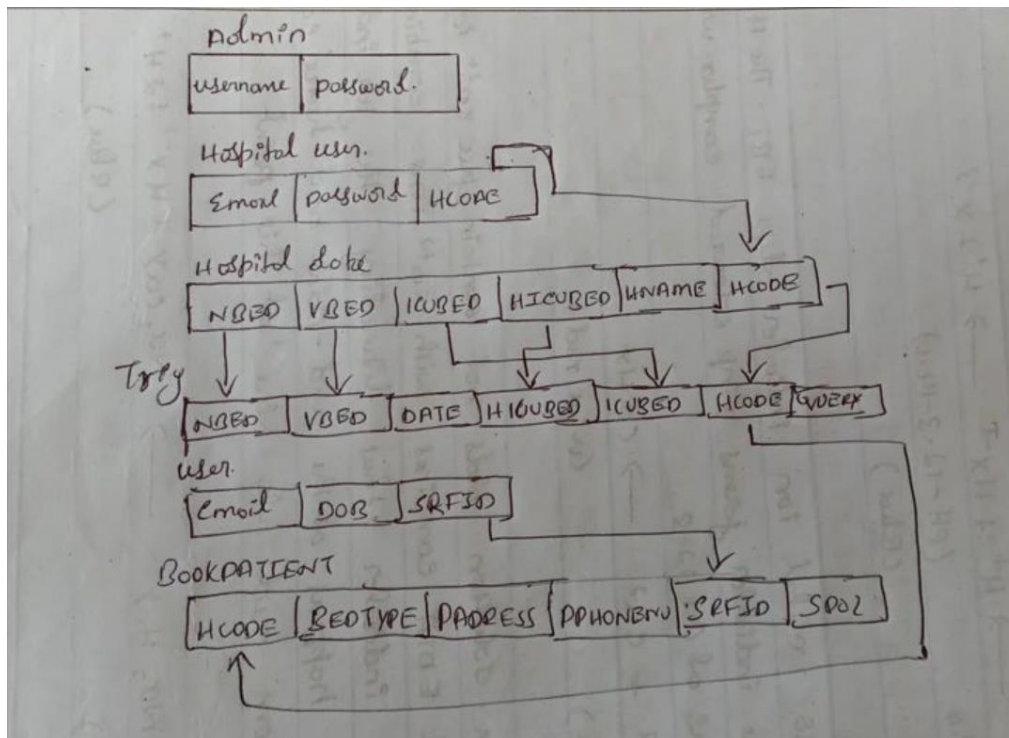 Admin
username password.
Hospital user.
Email password HCODE
Hospital date
NBED VBED ICUBED HICUBED HNAME HCODE
Trig
NBED VBED DATE HICUBED ICUBED HCODE QUERY
user.
Email DOB SRFID
BOOKPATIENT
HCODE BEDTYPE PADRESS PPHONENU SRFID SPO2